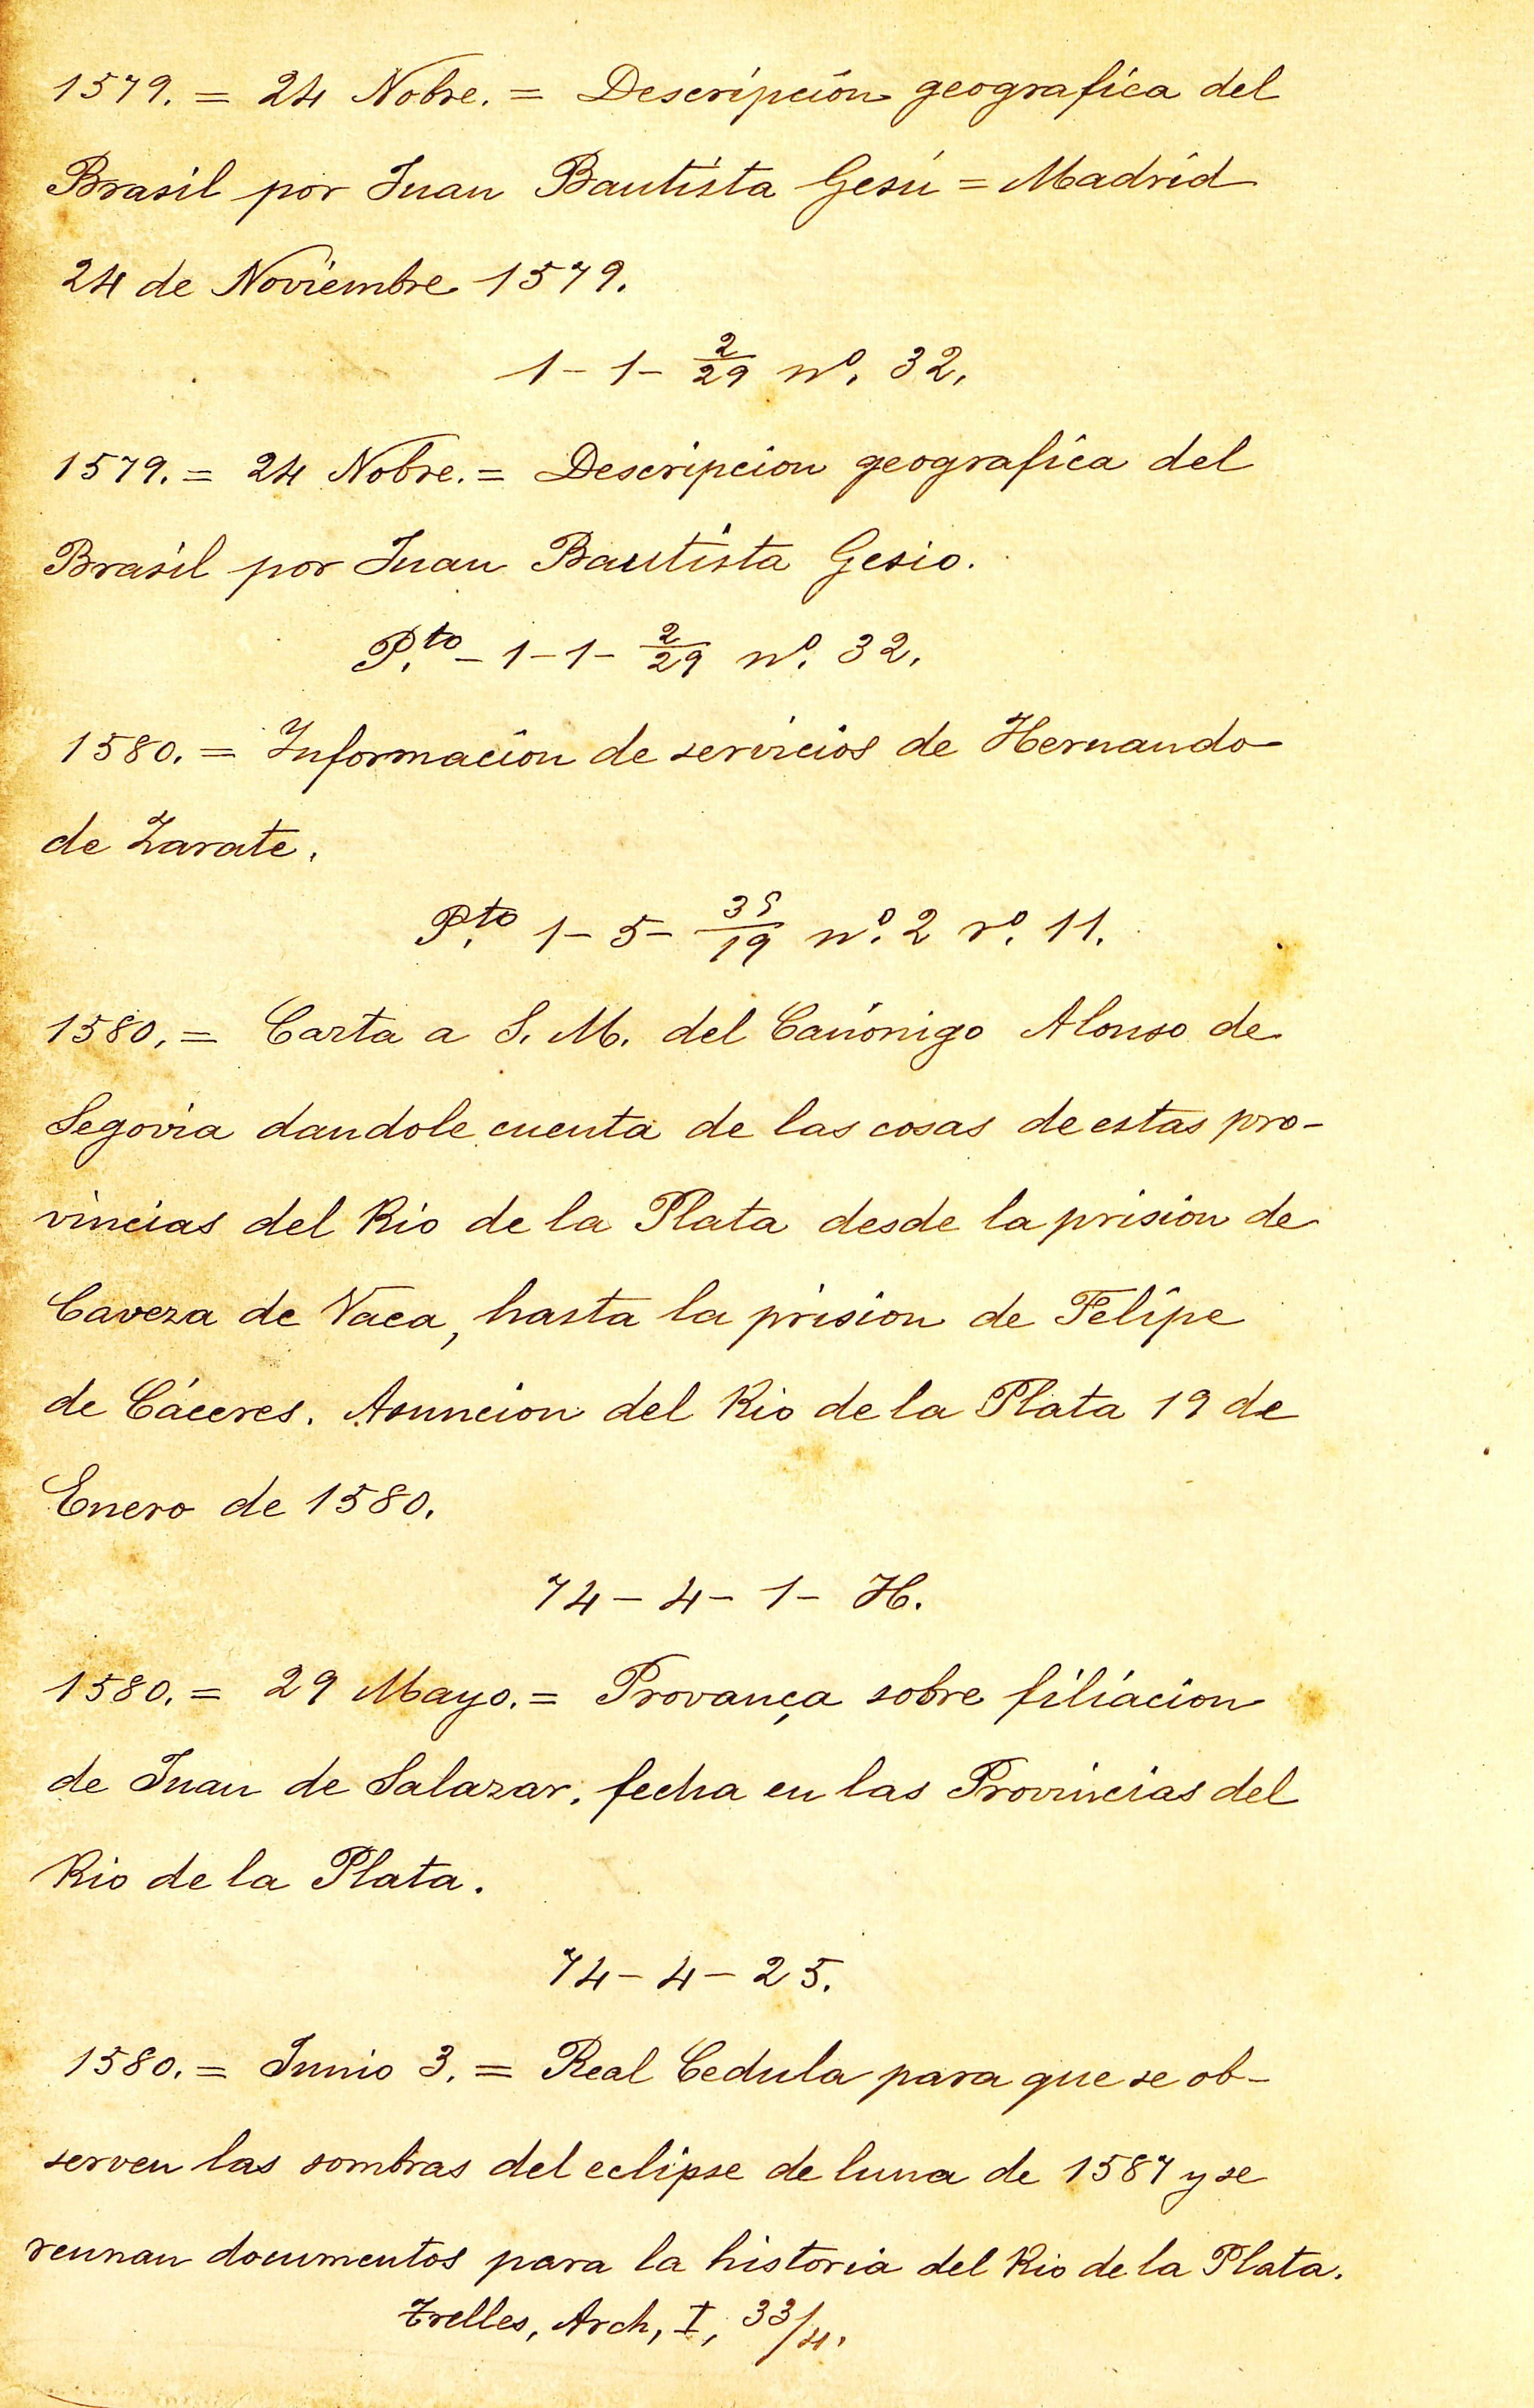 1579. = 24 Nobre. = Descripción geografica del
Brasil por Juan Bautista Gesú = Madrid
24 de Noviembre 1579.
1 - 1 - 2/29 nº. 32.
1579. = 24 Nobre. = Descripcion geografica del
Brasil por Juan Bautista Gesio.
P.to - 1 - 1 - 2/29 nº. 32.
1580. = Informacion de servicios de Hernando
de Zarate.
P.to 1 - 5 - 35/19 nº. 2 rº. 11.
1580. = Carta a S. M. del Canónigo Alonso de
Segovia dandole cuenta de las cosas de estas pro-
vincias del Rio de la Plata desde la prision de
Caveza de Vaca, hasta la prision de Felipe
de Cáceres. Asuncion del Rio de la Plata 19 de
Enero de 1580.
74 - 4 - 1 - H.
1580. = 29 Mayo. = Provança sobre filiacion
de Juan de Salazar. fecha en las Provincias del
Rio de la Plata.
74 - 4 - 25.
1580. = Junio 3. = Real Cedula para que se ob-
serven las sombras del eclipse de luna de 1587 y se
reunan documentos para la historia del Rio de la Plata.
Trelles, Arch, I, 33/4.